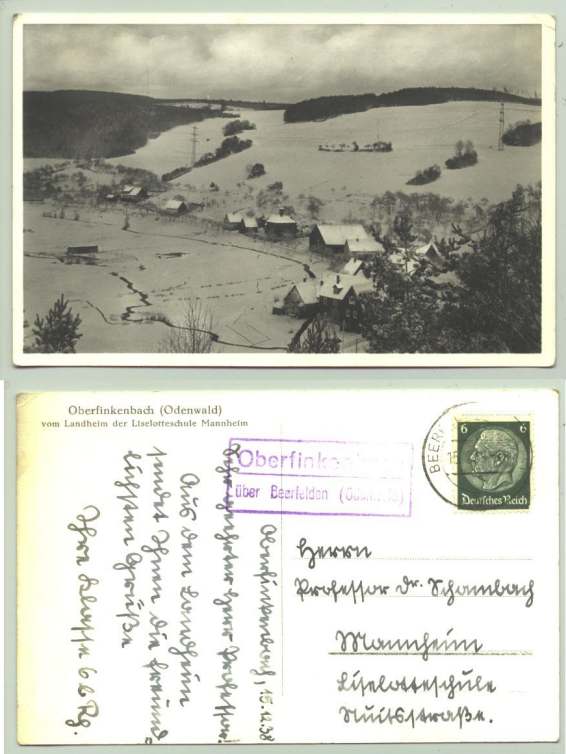 Oberfinkenbach (Odenwald)
vom Landheim der Liselotteschule Mannheim
Oberfinkenbach
über Beerfelden (Odenwald)
BEER
15
6 6
Deutsches Reich
Oberfinkenbach, 15.2.38
Sehr geehrter Herr Professor!
Aus dem Landheim
sendet Ihnen die freund-
lichsten Grüße
Ihre Klasse 6b Rg.
Herrn
Professor Dr. Schambach
Mannheim
Liselotteschule
Nuitsstraße.